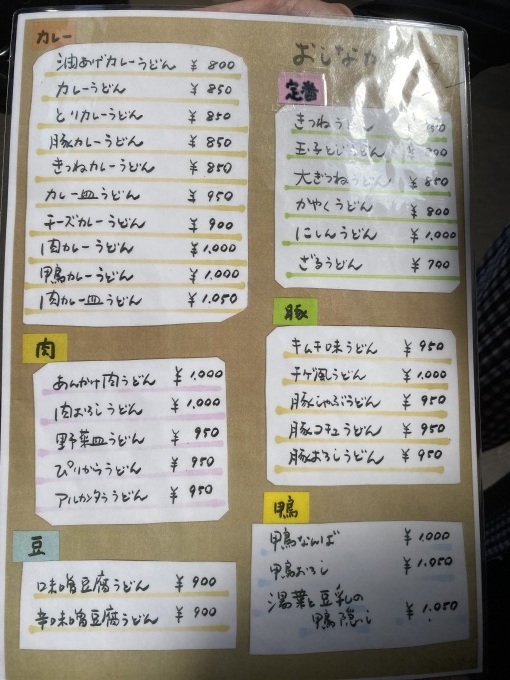 カレー
油あげカレーうどん ¥800
カレーうどん ¥850
とりカレーうどん ¥850
豚カレーうどん ¥850
きつねカレーうどん ¥850
カレー皿うどん ¥950
チーズカレーうどん ¥900
肉カレーうどん ¥1,000
鴨カレーうどん ¥1,000
肉カレー皿うどん ¥1,050
肉
あんかけ肉うどん ¥1,000
肉おろしうどん ¥1,000
野菜皿うどん ¥950
ぴりからうどん ¥950
アルカンタラうどん ¥950
豆
味噌豆腐うどん ¥900
辛味噌豆腐うどん ¥900
おしなが
定番
きつねうどん
玉子とじうどん
大きつねうどん ¥850
かやくうどん ¥800
にしんうどん ¥1,000
ざるうどん ¥700
豚
キムチ味うどん ¥950
チゲ風うどん ¥1,000
豚しゃぶうどん ¥950
豚コチュうどん ¥950
豚おろしうどん ¥950
鴨
鴨なんば ¥1,000
鴨おろし ¥1,050
湯葉と豆乳の
鴨隠し ¥1,050